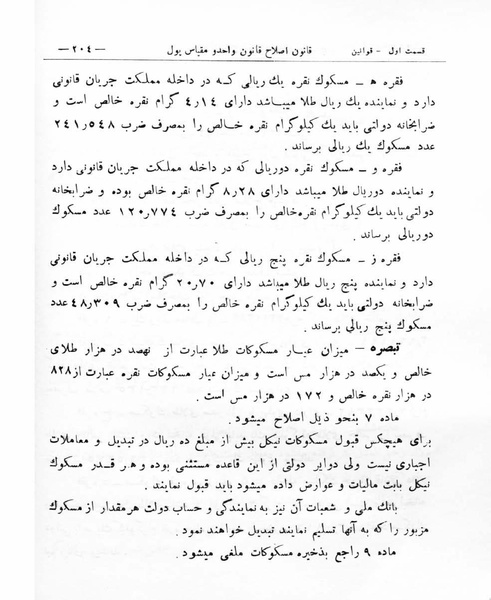 قسمت اول - قوانین قانون اصلاح قانون واحدو مقیاس پول —۲۰۴—
فقره ه – مسکوك نقره يك ریالی که در داخله مملکت جریان قانونی
دارد و نماینده يك ریال طلا میباشد دارای ۴٫۱۴ گرام نقره خالص است و
ضرابخانه دولتی باید يك کیلوگرام نقره خالص را بمصرف ضرب ۲۴۱٫۵۴۸
عدد مسکوك يك ریالی برساند .
فقره و – مسکوك نقره دوریالی که در داخله مملکت جریان قانونی دارد
و نماینده دوریال طلا میباشد دارای ۸٫۲۸ گرام نقره خالص بوده و ضرابخانه
دولتی باید يك کیلوگرام نقره خالص را بمصرف ضرب ۱۲۰٫۷۷۴ عدد مسکوك
دوریالی برساند .
فقره ز – مسکوك نقره پنج ریالی که در داخله مملکت جریان قانونی
دارد و نماینده پنج ریال طلا میباشد دارای ۲۰٫۷۰ گرام نقره خالص است و
ضرابخانه دولتی باید يك کیلوگرام نقره خالص را بمصرف ضرب ۴۸٫۳۰۹ عدد
مسکوك پنج ریالی برساند .
تبصره – میزان عیار مسکوکات طلا عبارت از نهصد در هزار طلای
خالص و یکصد در هزار مس است و میزان عیار مسکوکات نقره عبارت از ۸۲۸
در هزار نقره خالص و ۱۷۲ در هزار مس است .
ماده ۷ بنحو ذیل اصلاح میشود .
برای هیچکس قبول مسکوکات نیکل بیش از مبلغ ده ریال در تبدیل و معاملات
اجباری نیست ولی دوایر دولتی از این قاعده مستثنی بوده و هر قدر مسکوك
نیکل بابت مالیات و عوارض داده میشود باید قبول نمایند .
بانك ملی و شعبات آن نیز به نمایندگی و حساب دولت هرمقدار از مسکوك
مزبور را که به آنها تسلیم نمایند تبدیل خواهند نمود .
ماده ۹ راجع بذخیره مسکوکات ملغی میشود .